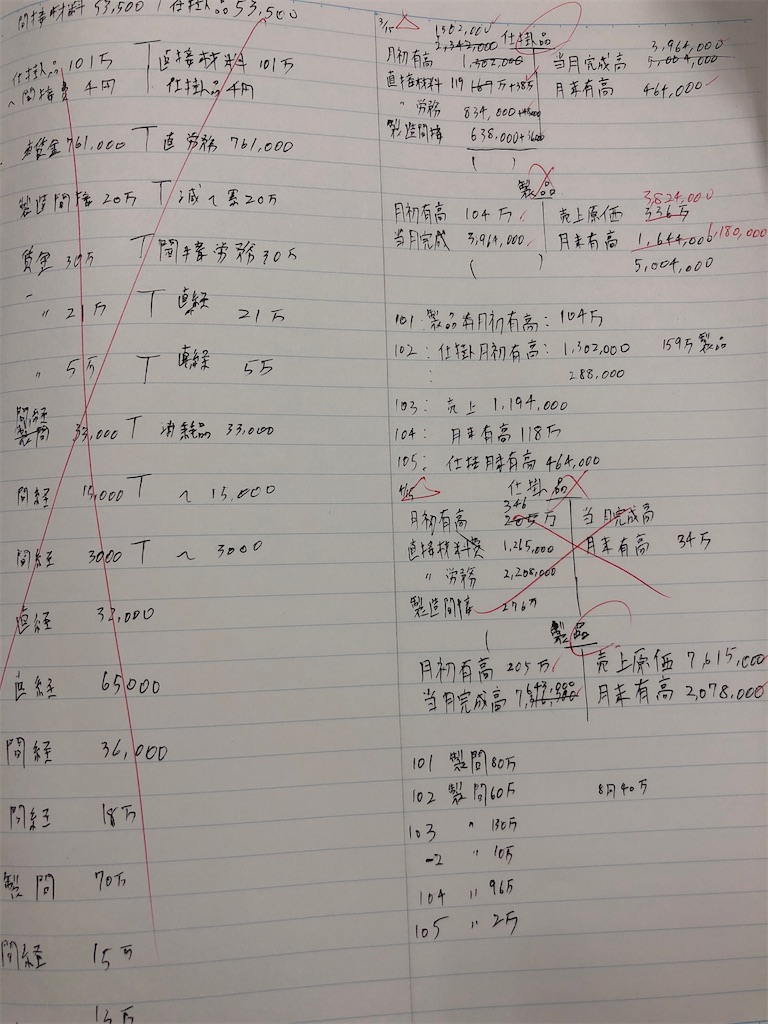 間接材料 53,500 / 仕掛品 53,500
仕掛品 101万 直接材料 101万
間接費 4円 仕掛品 4円
賃金 761,000 直労務 761,000
製造間接 20万 減〜累 20万
賃金 30万 間接労務 30万
〃 21万 直経 21万
〃 5万 直経 5万
間経
製間 33,000 消耗品 33,000
間経 15,000 〜 15,000
間経 3000 〜 3000
直経 33,000
直経 65000
間経 36,000
間経 18万
製間 70万
間経 15万
13万
3/15 仕掛品
1502,000
2,342,000
月初有高 1,302,000 当月完成高 3,964,000
5,004,000
直接材料 119 167万+385 月末有高 464,000
〃 労務 834,000
製造間接 638,000
( )
製品
月初有高 104万 売上原価 336万 3,824,000
当月完成 3,964,000 月末有高 1,644,000 1,180,000
( ) 5,004,000
101:製品有月初有高: 104万
102:仕掛月初有高: 1,302,000 159万 製品
: 288,000
103: 売上 1,194,000
104: 月末有高 118万
105: 仕掛月末有高 464,000
仕掛品
346
月初有高 205万 当月完成高
直接材料費 1,265,000 月末有高 34万
〃 労務 2,208,000
製造間接 276万
( 製品
月初有高 205万 売上原価 7,615,000
当月完成高 月末有高 2,078,000
101 製間 80万
102 製間 60万 8月40万
103 〃 130万
-2 〃 10万
104 〃 96万
105 〃 2万